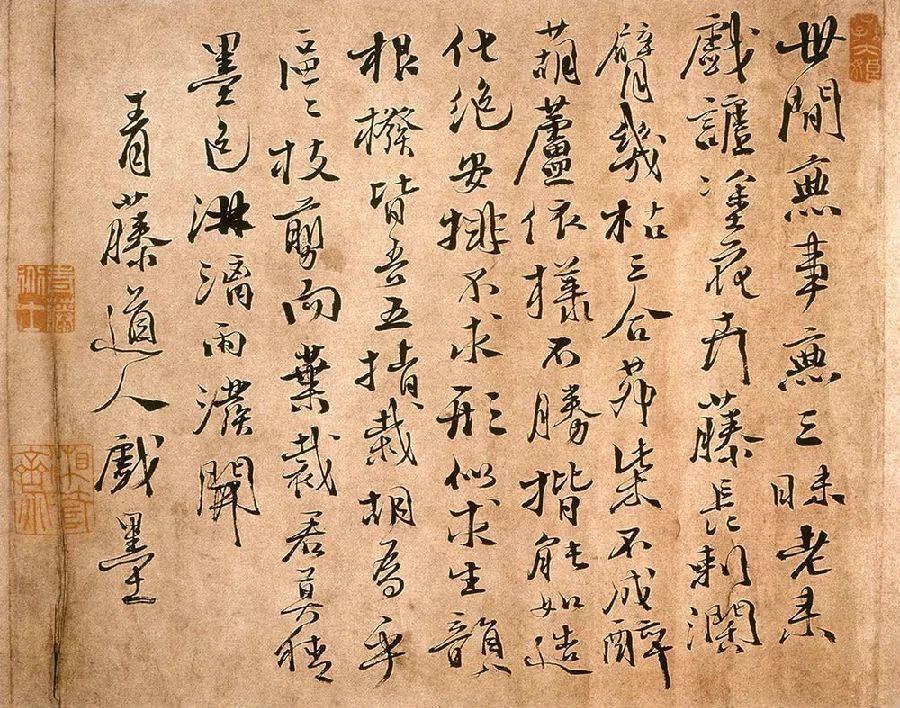 世間無事無三昧老来
戲謔塗花卉藤長刺濶
臂幾枯三合茅柴不成醉
葫蘆依樣不勝揩能如造
化絶安排不求形似求生韻
根撥皆吾五指栽胡爲乎
區〻枝剪向葉裁君莫猜
墨色淋漓雨潑開
青藤道人戲墨